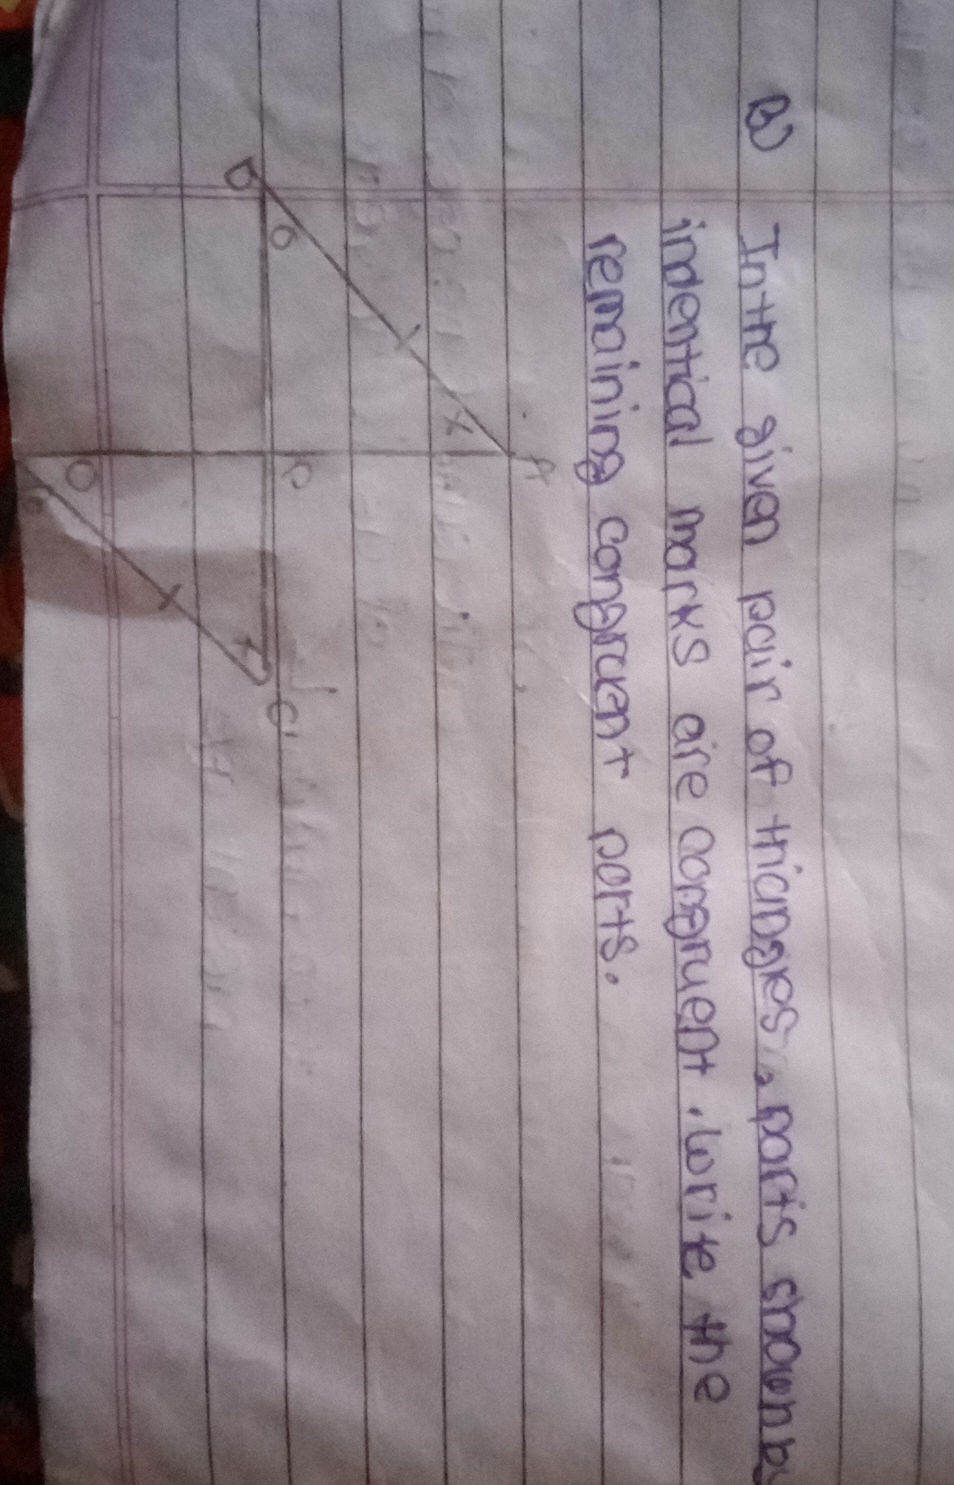 B) In the given pair of triangles, parts shown by
indentical marks are congruent. Write the
remaining congruent parts.
A
x
B
o
P
C
x
o